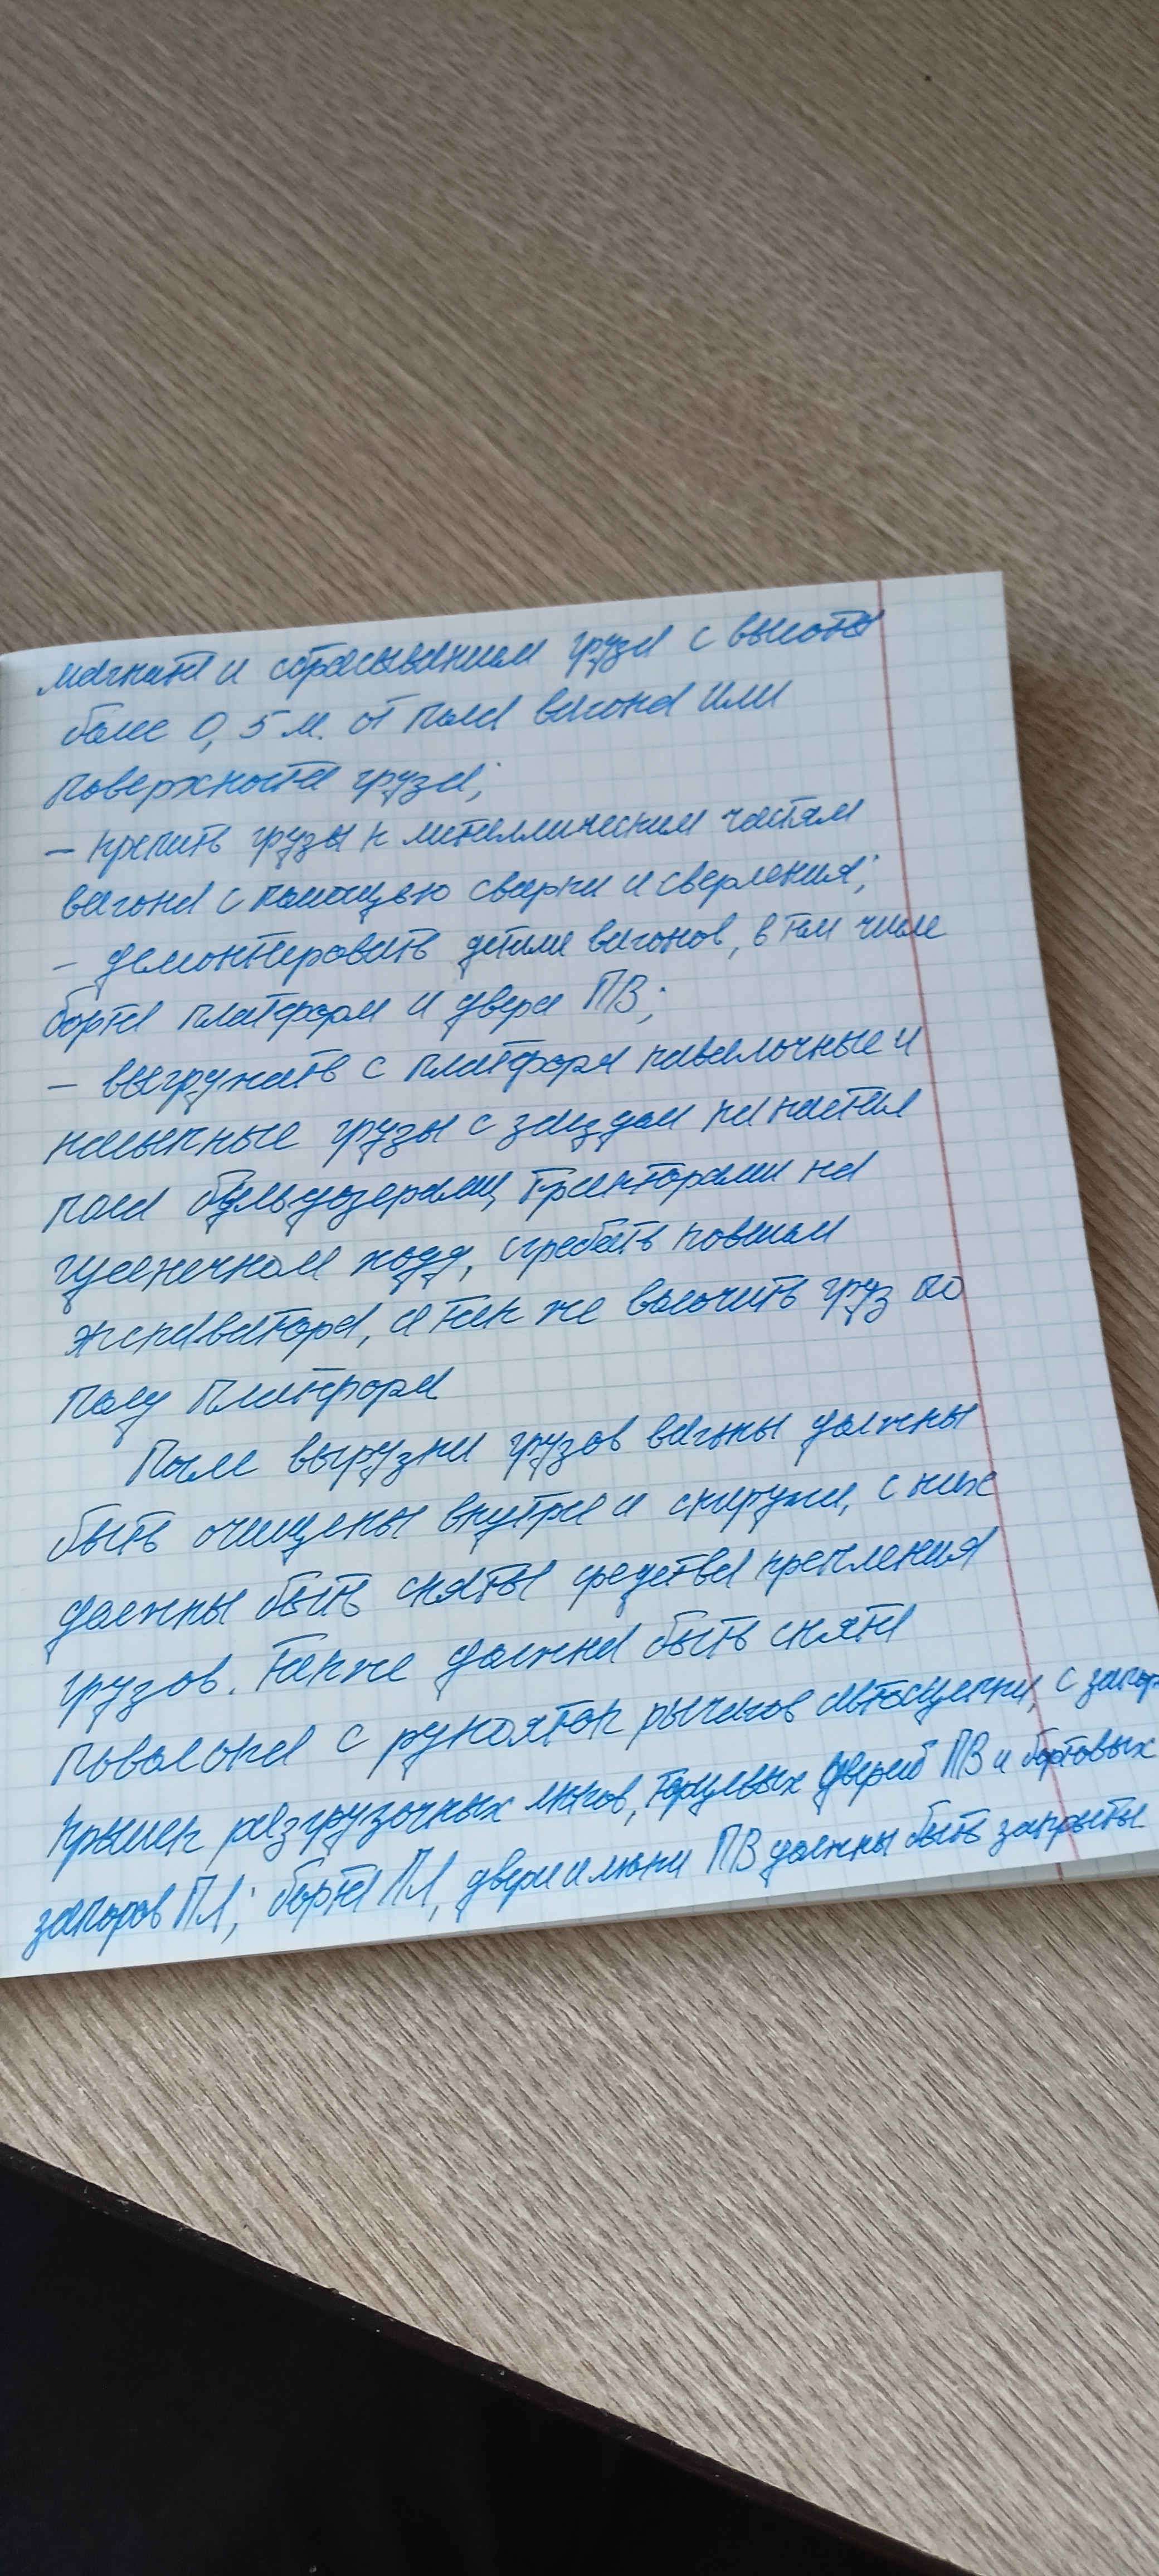 магнита и сбрасыванием груза с высоты
более 0,5 м. от пола вагона или
поверхности груза;
– крепить грузы к металлическим частям
вагона с помощью сварки и сверления;
– демонтировать детали вагонов, в том числе
борта платформ и двери ПВ;
– выгружать с платформ навалочные и
насыпные грузы с заездом на настил
пола бульдозерами, тракторами на
гусеничном ходу, сгребать ковшом
экскаватора, а так же волочить груз по
полу платформ
После выгрузки грузов вагоны должны
быть очищены внутри и снаружи, с них
должны быть сняты средства крепления
грузов. Также должна быть снята
поволока с рукояток рычагов автосцепки, с запор
крышек разгрузочных люков, торцевых дверей ПВ и бортовых
запоров ПЛ; борта ПЛ, двери и люки ПВ должны быть закрыты